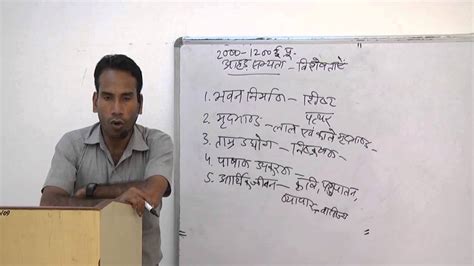 2000-1200 ई.पू.
आहड़ सभ्यता - विशेषताएँ
1. भवन निर्माण -
पत्थर
2. मृदभाण्ड - लाल एवं काले मृदभाण्ड
3. ताम्र उद्योग -
4. पाषाण उपकरण -
5. आर्थिक जीवन - कृषि, पशुपालन,
व्यापार वाणिज्य